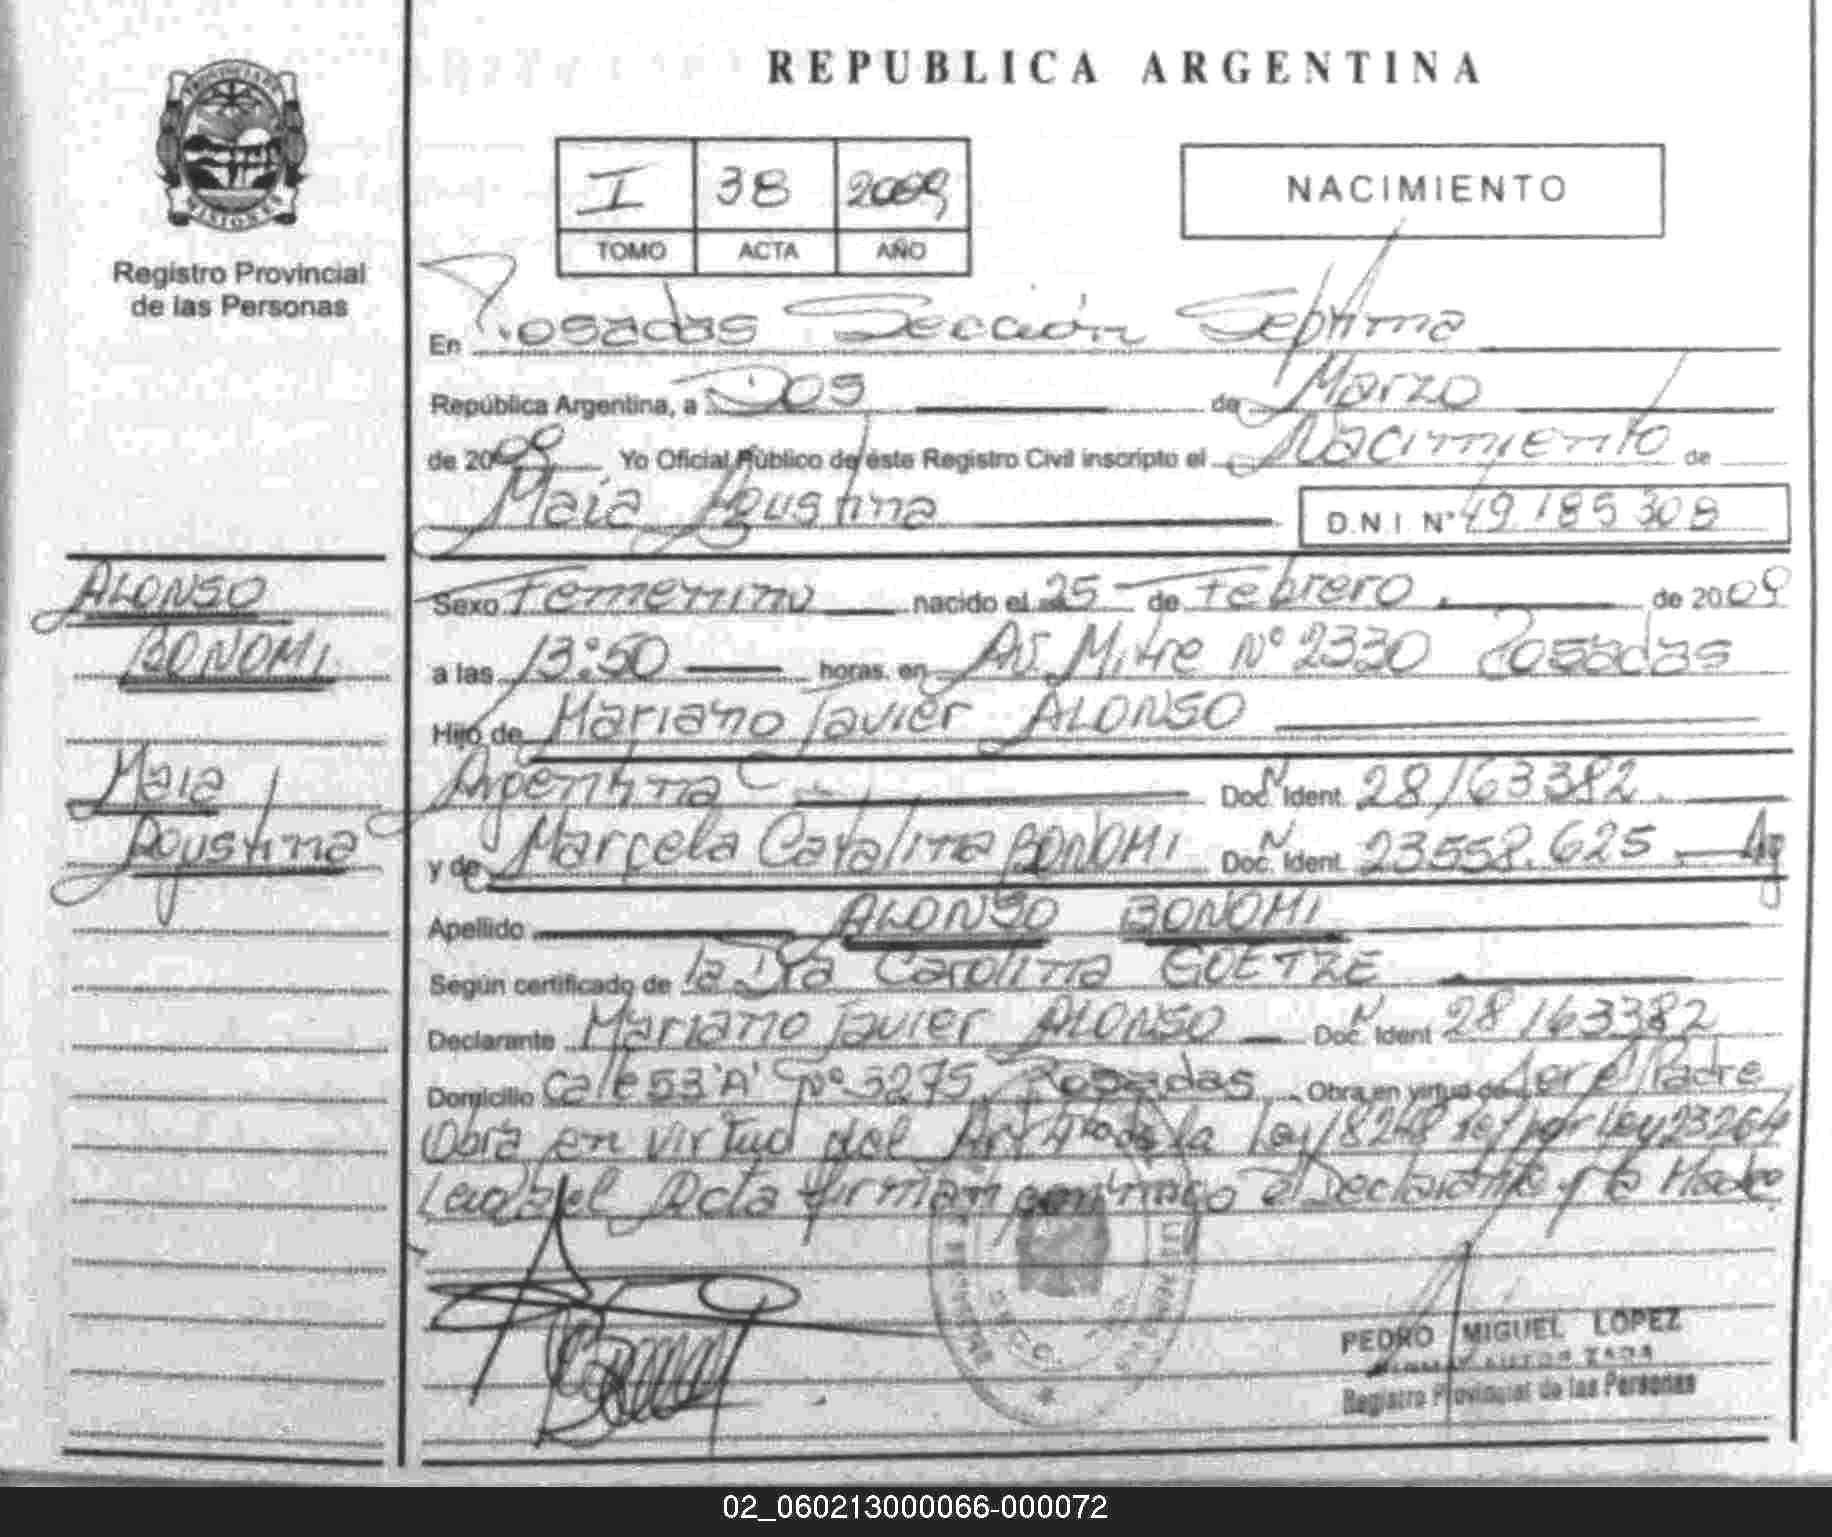 PROVINCIA DE
MISIONES
Registro Provincial
de las Personas
REPUBLICA ARGENTINA
I 38 2009
TOMO ACTA AÑO
NACIMIENTO
En Posadas Sección Septima
República Argentina, a Dos de Marzo
de 2009 Yo Oficial Público de éste Registro Civil inscripto el Nacimiento de
Maia Agustina D.N.I N° 49.185308
ALONSO
BONOMI
Maia
Agustina
Sexo Femenino nacido el 25 de Febrero de 2009
a las 13:50 horas. en Av. Mitre N° 2330 Posadas
Hijo de Mariano Javier ALONSO
Argentina Doc. Ident. 28163382
y de Marcela Catalina BONOMI Doc. Ident. 23558.625 Arg
Apellido ALONSO BONOMI
Según certificado de la Dra Carolina GOETZE
Declarante Mariano Javier ALONSO Doc. Ident 28163382
Domicilio Calle 53 'A' N° 3275 Posadas Obra en virtud de ser el Padre
Obra en virtud del Art 4to de la Ley 18248 ref por Ley 23264
Leida el Acta firman conmigo el Declarante y la Madre
PEDRO MIGUEL LOPEZ
Registro Provincial de las Personas
02_060213000066-000072